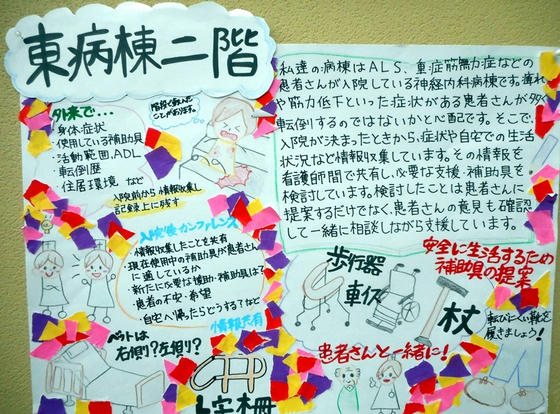 東病棟二階
私達の病棟はALS、重症筋無力症などの
患者さんが入院している神経内科病棟です。痺れ
や筋力低下といった症状がある患者さんが多く
転倒するのではないかと心配です。そこで、
入院が決まったときから、症状や自宅での生活
状況など情報収集しています。その情報を
看護師間で共有し、必要な支援・補助具を
検討しています。検討したことは患者さんに
提案するだけでなく、患者さんの意見も確認
して一緒に相談しながら支援しています。
外来で・・・
・身体症状
・使用している補助具
・活動範囲、ADL
・転倒歴
・住居環境 など
入院前から情報収集し
記録上に残す
ことがあります。
入院後・カンファレンス
・情報収集したことを共有
・現在使用中の補助具が患者さん
に適しているか
・新たに必要な援助・補助具は?
・患者の不安・希望
・自宅へ帰ったらどうする?など
情報共有
安全に生活するため
補助具の提案
歩行器
車イス
杖
転びにくい靴を
履きましょう!
ベットは
右側り?左側り?
患者さんと一緒に!
L字柵